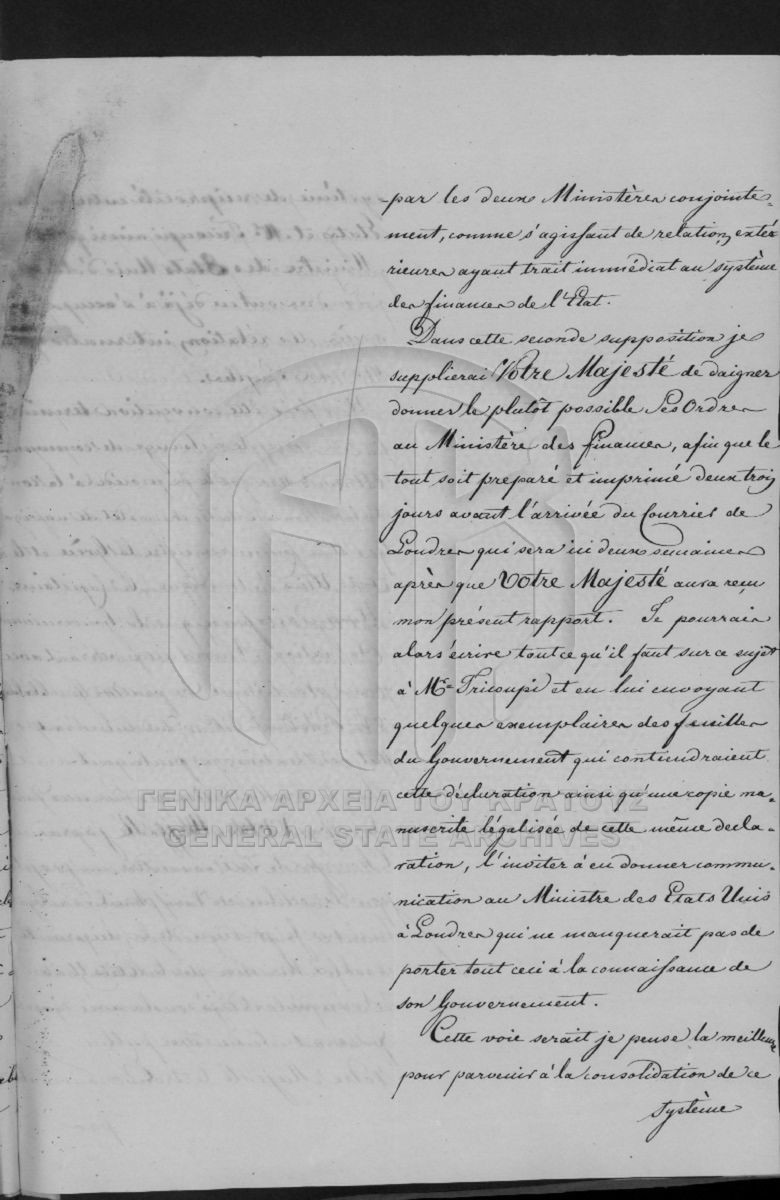 par les deux Ministères conjointe-
ment, comme s'agissant de relations exté-
rieures ayant trait immédiat au système
des finances de l'Etat.
Dans cette seconde supposition je
supplierai Votre Majesté de daigner
donner le plutôt possible Ses Ordres
au Ministère des finances, afin que le
tout soit preparé et imprimé deux trois
jours avant l'arrivée du Courrier de
Londres qui sera ici deux semaines
après que Votre Majesté aura reçu
mon présent rapport. Je pourrais
alors écrire tout ce qu'il faut sur ce sujet
à Mr Tricoupi et en lui envoyant
quelques exemplaires des feuilles
du Gouvernement qui contiendraient
cette déclaration ainsi qu'une copie ma-
nuscrite légalisée de cette même decla-
ration, l'inviter à en donner commu-
nication au Ministre des Etats Unis
à Londres qui ne manquerait pas de
porter tout ceci à la connaissance de
son Gouvernement.
Cette voie serait je pense la meilleure
pour parvenir à la consolidation de ce
système
ΓΕΝΙΚΑ ΑΡΧΕΙΑ ΤΟΥ ΚΡΑΤΟΥΣ
GENERAL STATE ARCHIVES